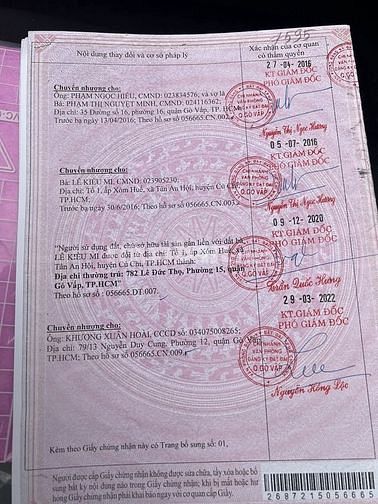 1595
Nội dung thay đổi và cơ sở pháp lý
Xác nhận của cơ quan
có thẩm quyền
27-04-2016
KT.GIÁM ĐỐC
PHÓ GIÁM ĐỐC
Chuyển nhượng cho:
Ông: PHẠM NGỌC HIẾU, CMND: 023834576; và vợ là
Bà: PHẠM THỊ NGUYỆT MINH, CMND: 024116362;
Địa chỉ: 35 Đường số 16, phường 16, quận Gò Vấp, TP.HCM;
Trước bạ ngày 13/04/2016; Theo hồ sơ số 056665.CN.002
CHI NHÁNH
VĂN PHÒNG
ĐĂNG KÝ ĐẤT ĐAI
Q.GÒ VẤP
Nguyễn Thị Ngọc Hương
05-07-2016
KT.GIÁM ĐỐC
PHÓ GIÁM ĐỐC
Chuyển nhượng cho:
Bà: LÊ KIỀU MI, CMND: 023905230;
Địa chỉ: Tổ 1, ấp Xóm Huế, xã Tân An Hội, huyện Củ Chi,
TP.HCM;
Trước bạ ngày 30/6/2016; Theo hồ sơ số 056665.CN.003
CHI NHÁNH
VĂN PHÒNG
ĐĂNG KÝ ĐẤT ĐAI
Q.GÒ VẤP
Nguyễn Thị Ngọc Hương
09-12-2020
KT.GIÁM ĐỐC
PHÓ GIÁM ĐỐC
"Người sử dụng đất, chủ sở hữu tài sản gắn liền với đất bà
LÊ KIỀU MI được đổi từ địa chỉ: Tổ 1, ấp Xóm Huế, xã
Tân An Hội, huyện Củ Chi, TP.HCM thành:
Địa chỉ thường trú: 782 Lê Đức Thọ, Phường 15, quận
Gò Vấp, TP.HCM"
Theo hồ sơ số: 056665.DT.007
CHI NHÁNH
VĂN PHÒNG
ĐĂNG KÝ ĐẤT ĐAI
Q.GÒ VẤP
Trần Quốc Hương
29-03-2022
KT.GIÁM ĐỐC
PHÓ GIÁM ĐỐC
Chuyển nhượng cho:
Ông: KHƯƠNG XUÂN HOÀI, CCCD số: 034075008265;
Địa chỉ: 79/13 Nguyễn Duy Cung, Phường 12, quận Gò Vấp,
TP.HCM; Theo hồ sơ số 056665.CN.009
CHI NHÁNH
VĂN PHÒNG
ĐĂNG KÝ ĐẤT ĐAI
Q.GÒ VẤP
Nguyễn Hồng Lộc
Kèm theo Giấy chứng nhận này có Trang bổ sung số: 01,
Người được cấp Giấy chứng nhận không được sửa chữa, tẩy xóa hoặc bổ
sung bất kỳ nội dung nào trong Giấy chứng nhận; khi bị mất hoặc hư
hỏng Giấy chứng nhận phải khai báo ngay với cơ quan cấp Giấy.
2687215056665